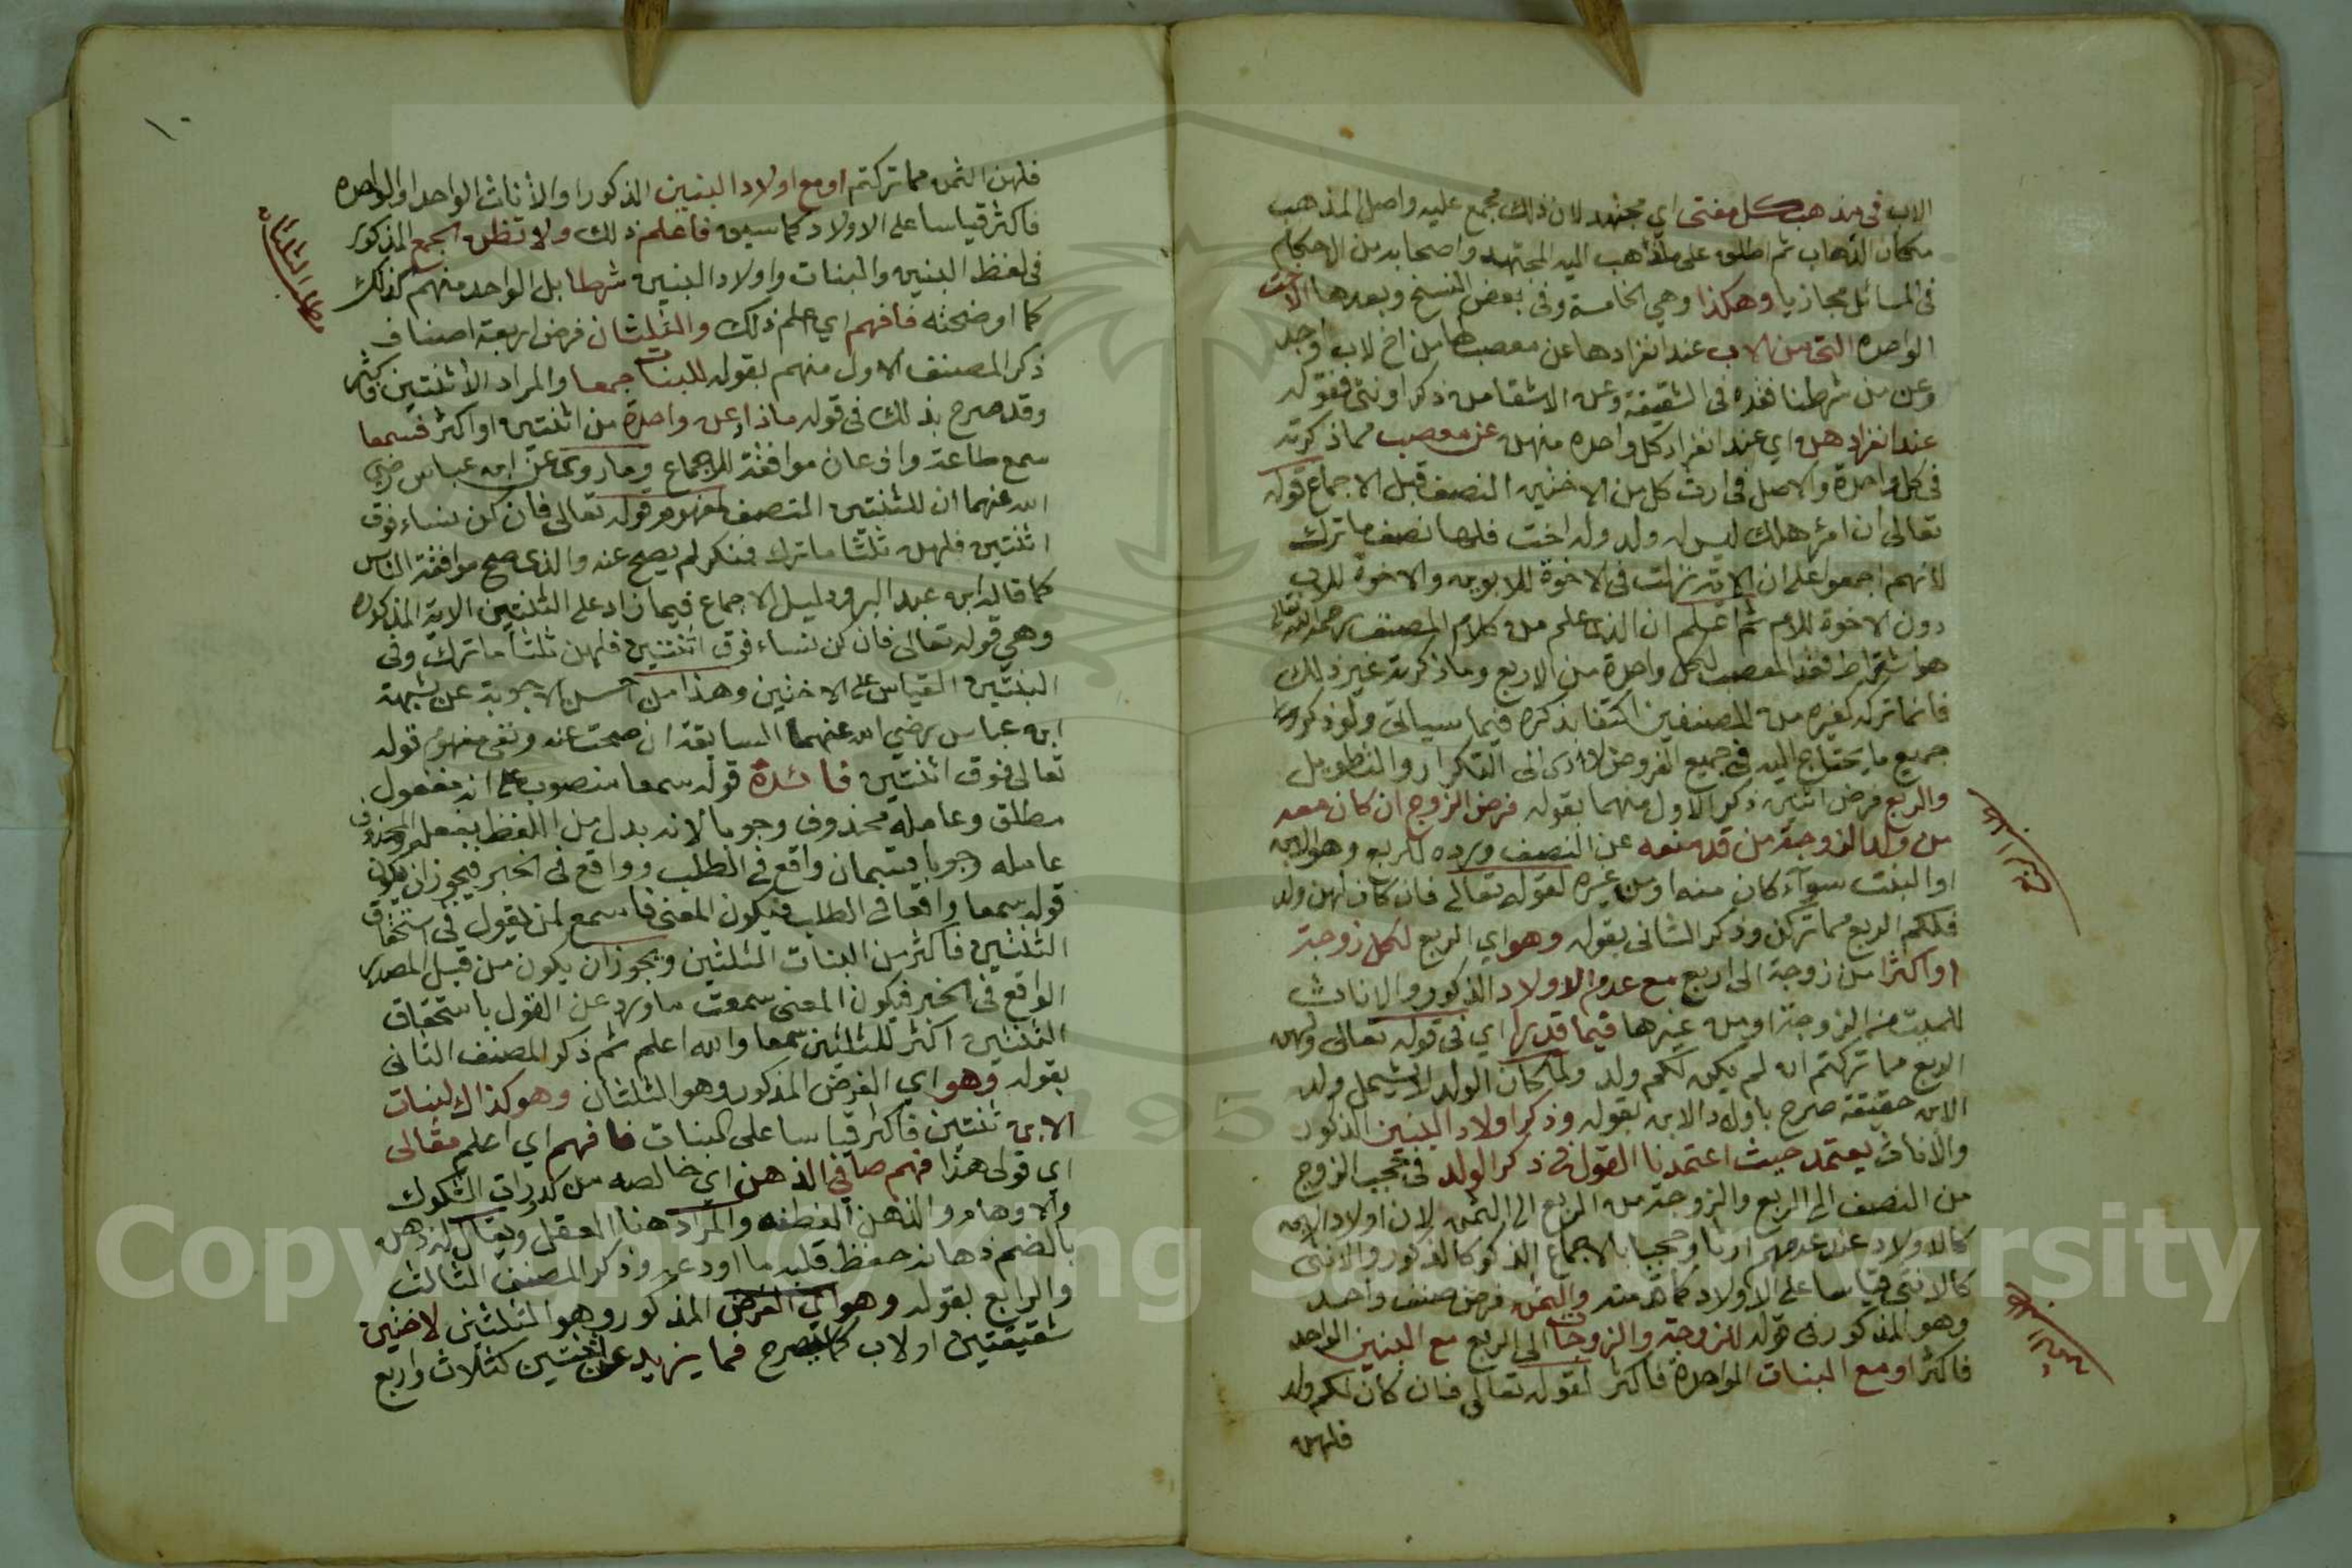 الاب في مذهب كل مفتي اي مجتهد لان ذلك مجمع عليه واصل المذهب
مكان الذهاب ثم اطلق على ما ذهب اليه المجتهد واصحابه من الاحكام
في المسائل مجازيا وهكذا وهي الخامسة وفي بعض النسخ وبعدها الاخت
الواحدة التي من الاب عند انفرادها عن معصبها من اخ لاب وجد
وعن من شرطنا فقده في الشقيقة وعن الاشقا من ذكر او نثى فقوله
عند انفرادهن اي عند انفراد كل واحده منهن عن معصب مما ذكرته
في كل واحدة والاصل في ارث كل من الاختين النصف قبل الاجماع قوله
تعالى ان امرؤ هلك ليس له ولد وله اخت فلها نصف ما ترك
لانهم اجمعوا على ان الاية نزلت في الاخوة للابوين والاخوة للاب
دون الاخوة للام ثم اعلم ان الذي علم من كلام المصنف رحمه الله تعالى
هو اشتراط فقد المعصب لكل واحدة من الاربع وما ذكرته غير ذلك
فانما تركه كغيره من المصنفين اكتفا بذكره فيما سياتي ولو ذكروا
جميع ما يحتاج اليه في جميع الفروض لادى الى التكرار والتطويل
والربع فرض اثنين ذكر الاول منهما بقوله فرض الزوج ان كان معه
من ولد الزوجة من قد منعه عن النصف ورده للربع وهو الابن
او البنت سوآء كان منه او من غيره لقوله تعالى فان كان لهن ولد
فلكم الربع مما تركن وذكر الثاني بقوله وهو اي الربع لكل زوجة
او اكثرا من زوجة الى اربع مع عدم الاولاد الذكور والاناث
للميت من الزوجة او من غيرها فيما قدرا اي في قوله تعالى ولهن
الربع مما تركتم ان لم يكن لكم ولد ولما كان الولد لا يشمل ولد
الابن حقيقة صرح باولاد الابن بقوله وذكر اولاد البنين الذكور
والاناث يعتمد حيث اعتمدنا القول في ذكر الولد في حجب الزوج
من النصف الى الربع والزوجة من الربع الى الثمن لان اولاد الابن
كالاولاد عند عدمهم ارثا وحجبا بالاجماع الذكر كالذكور والانثى
كالانثى قياسا على الاولاد كما قدمته والثمن فرض صنف واحد
وهو المذكور في قوله للزوجة والزوجات الى الربع مع البنين الواحد
فاكثر او مع البنات الواحدة فاكثر لقوله تعالى فان كان لكم ولد
فلهن
١٠
فلهن الثمن مما تركتم او مع اولاد البنين الذكور او الاناث الواحد او الواحده
فاكثر قياسا على الاولاد كما سبق فاعلم ذلك ولا تظن الجمع المذكور
في لفظ البنين والبنات واولاد البنين شرطا بل الواحد منهم كذلك
كما اوضحته فافهم اي اعلم ذلك والثلثان فرض اربعة اصناف
ذكر المصنف الاول منهم بقوله للبنات جمعا والمراد الاثنتين فاكثر
وقد صرح بذلك في قوله ما زاد عن واحدة من اثنتين او اكثر فسمعا
سمع طاعة واذعان موافقة للاجماع وما روي عن ابن عباس رضي
الله عنهما ان للثنتين النصف لمفهوم قوله تعالى فان كن نساء فوق
اثنتين فلهن ثلثا ما ترك فمنكر لم يصح عنه والذي صح موافقة الناس
كما قاله ابن عبد البر ودليل الاجماع فيما زاد على الثنتين الاية المذكورة
وهي قوله تعالى فان كن نساء فوق اثنتين فلهن ثلثا ما ترك وفي
البنتين القياس على الاختين وهذا من احسن الاجوبة عن شبهة
ابن عباس رضي الله عنهما السابقة ان صحت عنه ونفي مفهوم قوله
تعالى فوق اثنتين فائدة قوله سمعا منصوب على انه مفعول
مطلق وعامله محذوف وجوبا لانه بدل من اللفظ بفعله والمحذوف
عامله وجوبا قسمان واقع في الطلب وواقع في الخبر فيجوز ان يكون
قوله سمعا واقعا في الطلب فيكون المعنى فاسمع لمن يقول في استحقاق
الثنتين فاكثر من البنات الثلثين ويجوز ان يكون من قبيل المصدر
الواقع في الخبر فيكون المعنى سمعت ما ورد عن القول باستحقاق
الثنتين اكثر للثلثين سمعا والله اعلم ثم ذكر المصنف الثاني
بقوله وهو اي الفرض المذكور وهو الثلثان وهو كذاك لبنات
الابن ثنتين فاكثر قياسا على البنات فافهم اي اعلم مقالى
اي قولى هذا فهم صافي الذهن اي خالصه من كدورات الشكوك
والاوهام والذهن الفطنه والمراد هنا العقل ويقال له ذهن
بالضم ذهانة حفظ قلبه ما اودعه وذكر المصنف الثالث
والرابع بقوله وهو اي الفرض المذكور وهو الثلثين لاختين
شقيقتين او لاب كما صرح فما يزيد عن اثنتين كثلاث واربع